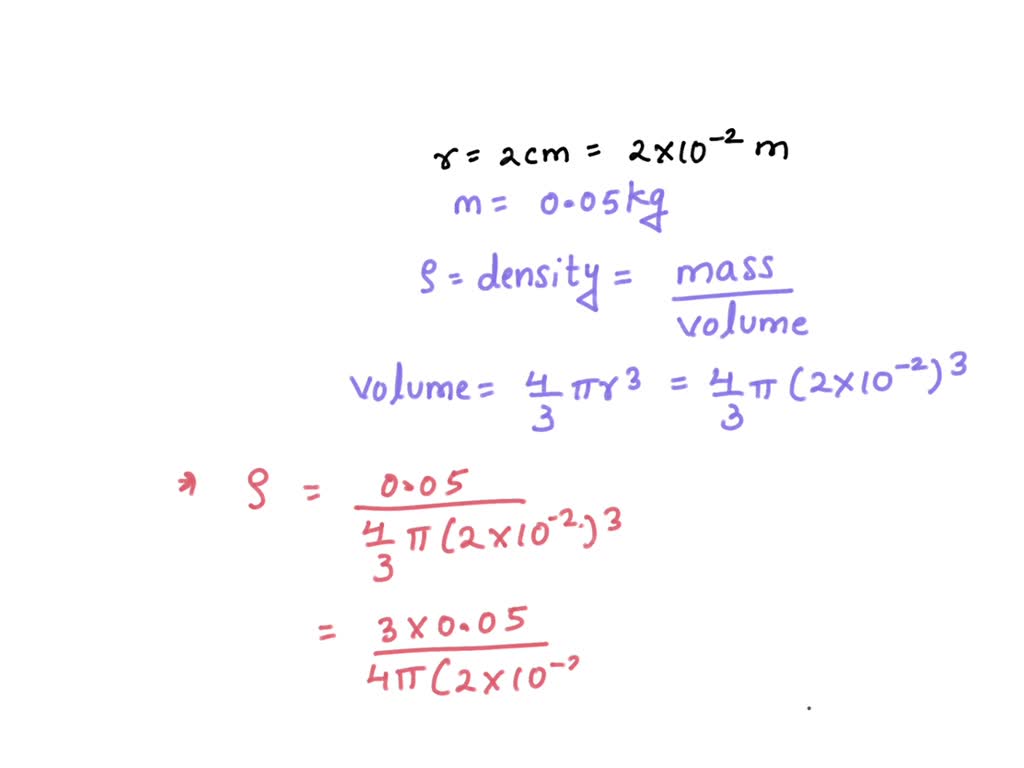 r = 2cm = 2×10⁻² m
m = 0.05kg
ρ = density = mass/volume
volume = 4/3 πr³ = 4/3 π (2×10⁻²)³
→ ρ = 0.05 / 4/3 π(2×10⁻²)³
= 3×0.05 / 4π(2×10⁻²